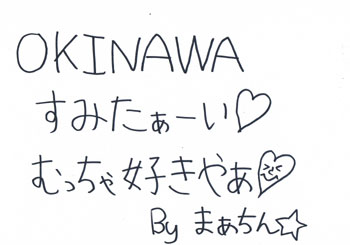 OKINAWA
すみたぁーい♡
むっちゃ好きやぁ♡
By まぁちん☆